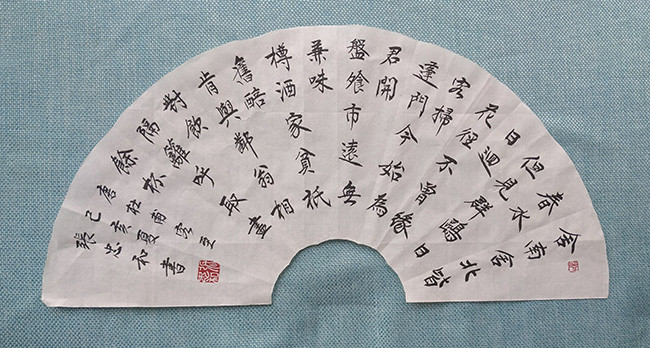 舍南舍北皆
春水
但見群鷗日
日迴
花徑不曾緣
客掃
蓬門今始為
君開
盤飧市遠無
兼味
樽酒家貧祇
舊醅
肯與鄰翁相
對飲
隔籬呼取盡
餘杯
唐杜甫客至
己亥夏
張忠和書